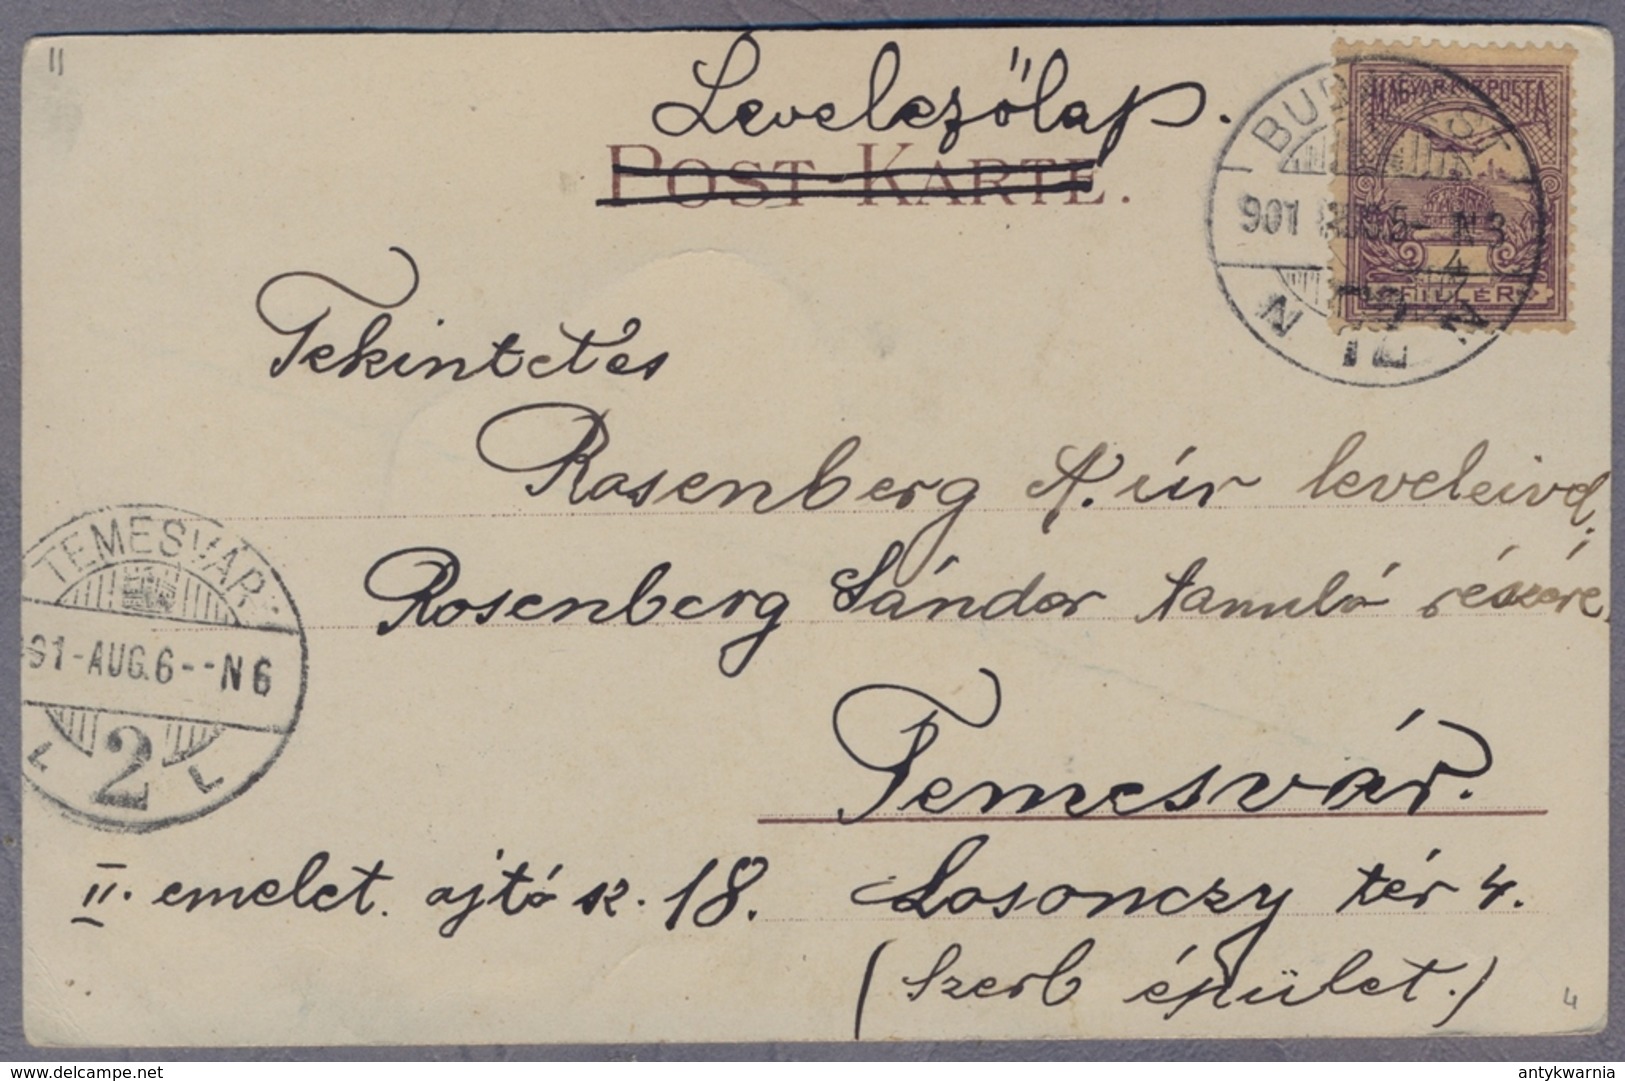 Levelezőlap.
POST-KARTE.
MAGYAR KIR. POSTA
FILLÉR
BUDAPEST
901 AUG. 5- N 3
Tekintetes
Rosenberg A. úr leveleivel.
Rosenberg Sándor tanuló részére
TEMESVÁR
901-AUG.6--N6
2
L L
Temesvár.
II. emelet. ajtó sz. 18. Losonczy tér 4.
(Szerb épület.)
4
www.delcampe.net
antykwarnia